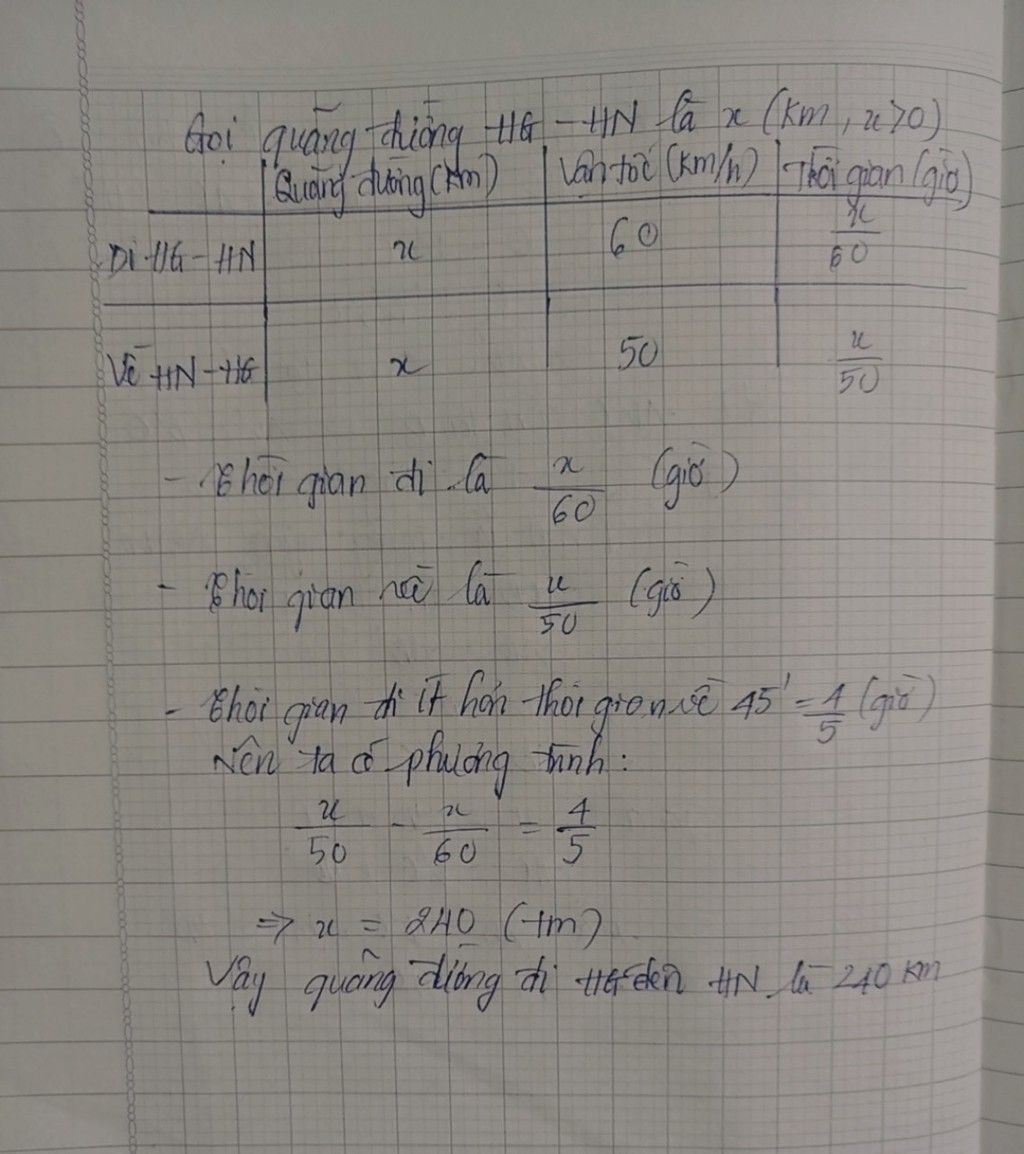 Gọi quãng đường HG - HN là x (km, x>0)
Quãng đường (km) Vận tốc (km/h) Thời gian (giờ)
Đi HG - HN x 60 x/60
Về HN - HG x 50 x/50
- Thời gian đi là x/60 (giờ)
- Thời gian về là x/50 (giờ)
- Thời gian đi ít hơn thời gian về 45' = 4/5 (giờ)
Nên ta có phương trình:
x/50 - x/60 = 4/5
=> x = 240 (tm)
Vậy quãng đường đi HG đến HN là 240 km